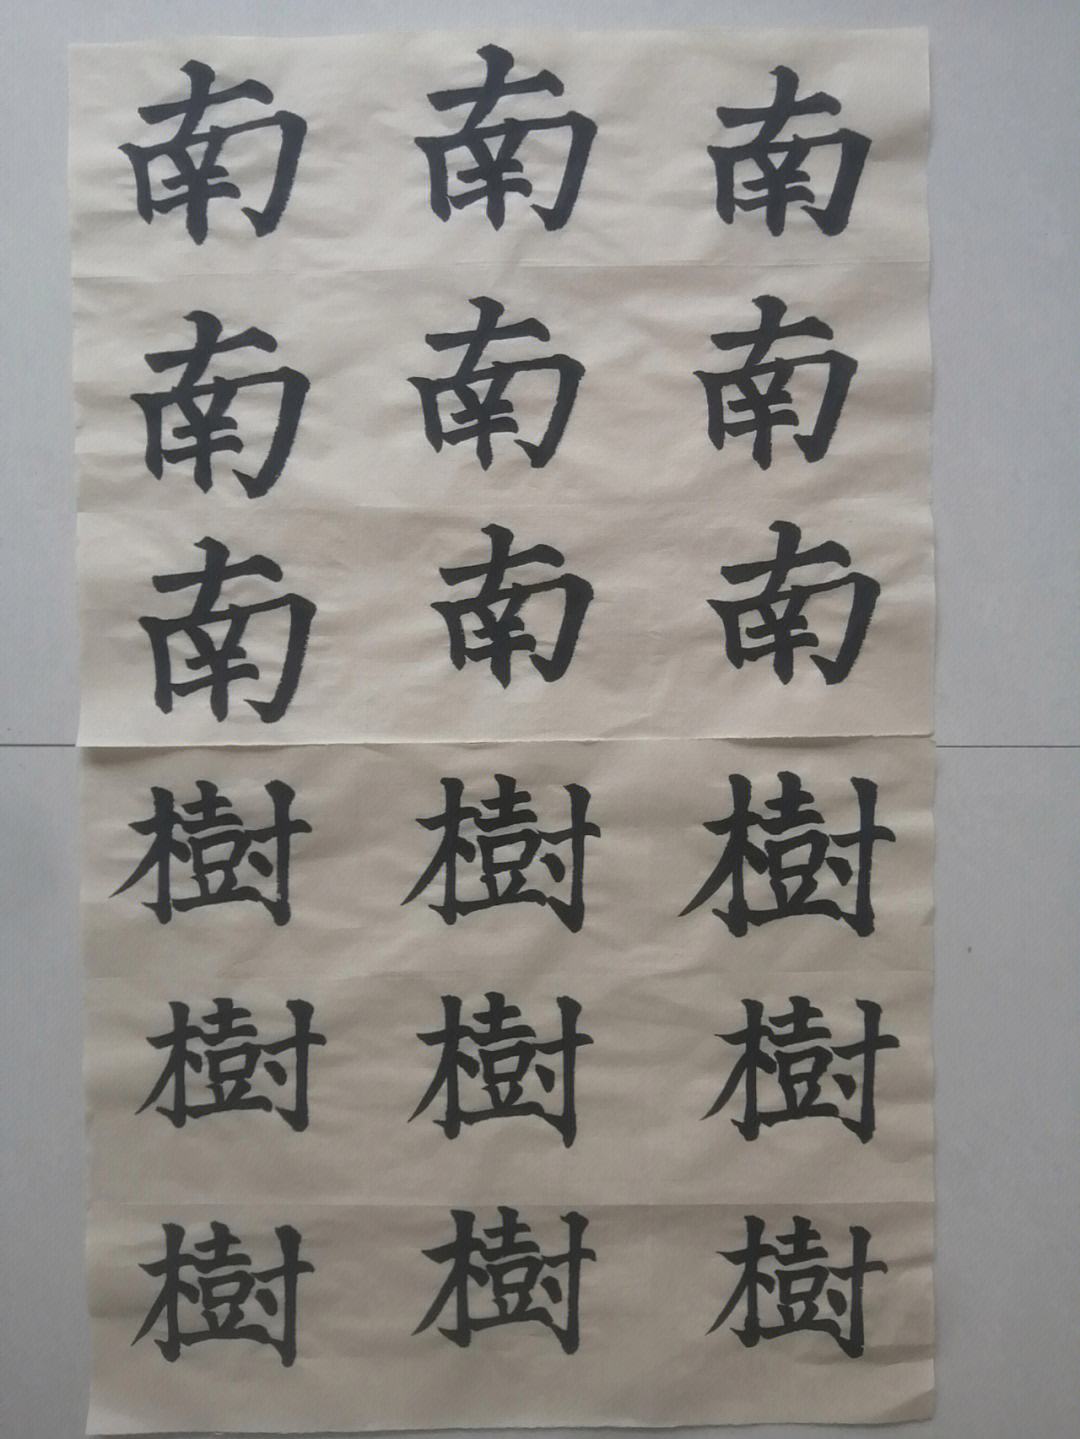 南南南
南南南
南南南
樹樹樹
樹樹樹
樹樹樹